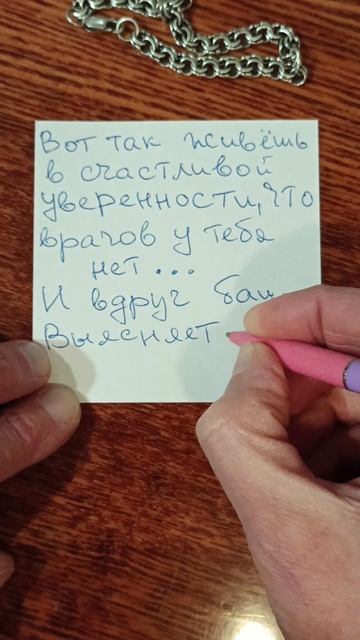 Вот так живёшь
в счастливой
уверенности, что
врагов у тебя
нет...
И вдруг бац
Выясняет